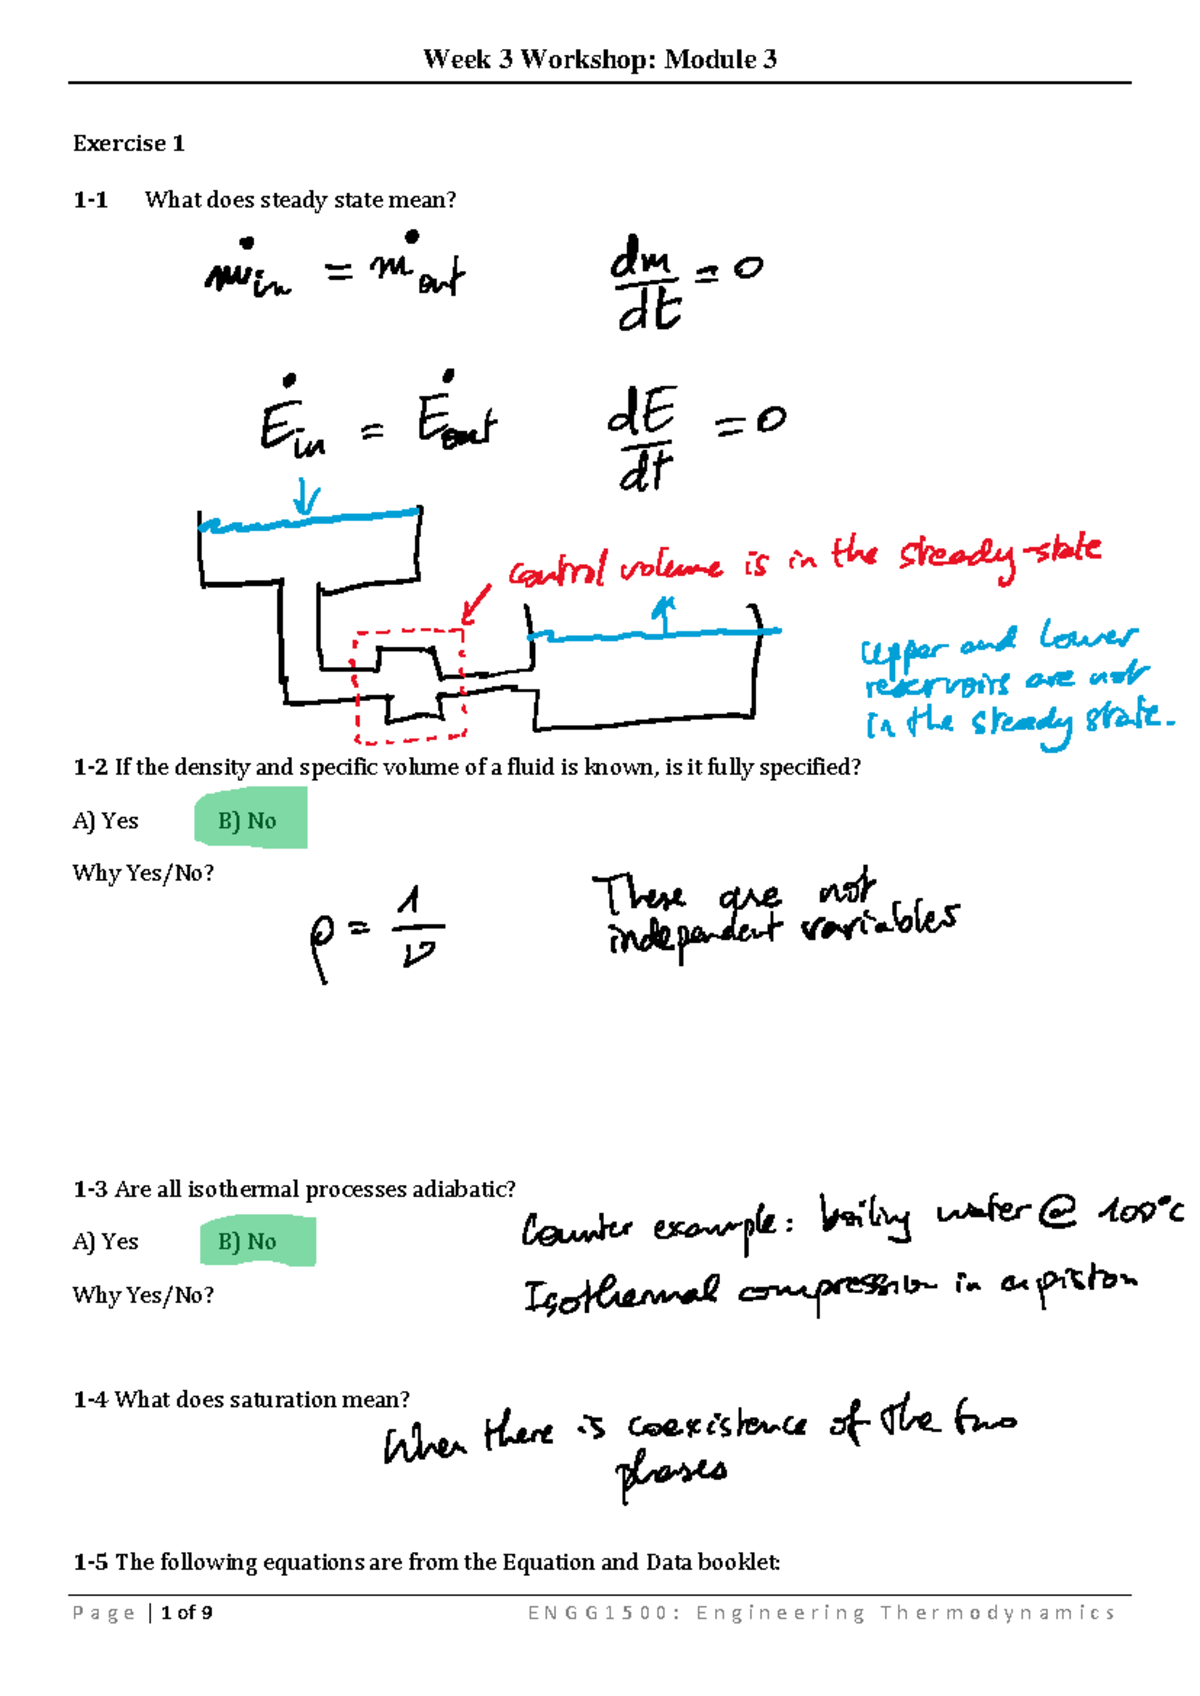 Week 3 Workshop: Module 3
Exercise 1
1-1 What does steady state mean?
ṁin = ṁout dm/dt = 0
Ėin = Ėout dE/dt = 0
control volume is in the steady-state
Upper and lower
reservoirs are not
in the steady state.
1-2 If the density and specific volume of a fluid is known, is it fully specified?
A) Yes B) No
Why Yes/No?
ρ = 1/v
These are not
independent variables
1-3 Are all isothermal processes adiabatic?
Counter example: boiling water @ 100°C
A) Yes B) No
Why Yes/No?
Isothermal compression in a piston
1-4 What does saturation mean?
When there is coexistence of the two
phases
1-5 The following equations are from the Equation and Data booklet:
Page | 1 of 9 ENGG1500: Engineering Thermodynamics